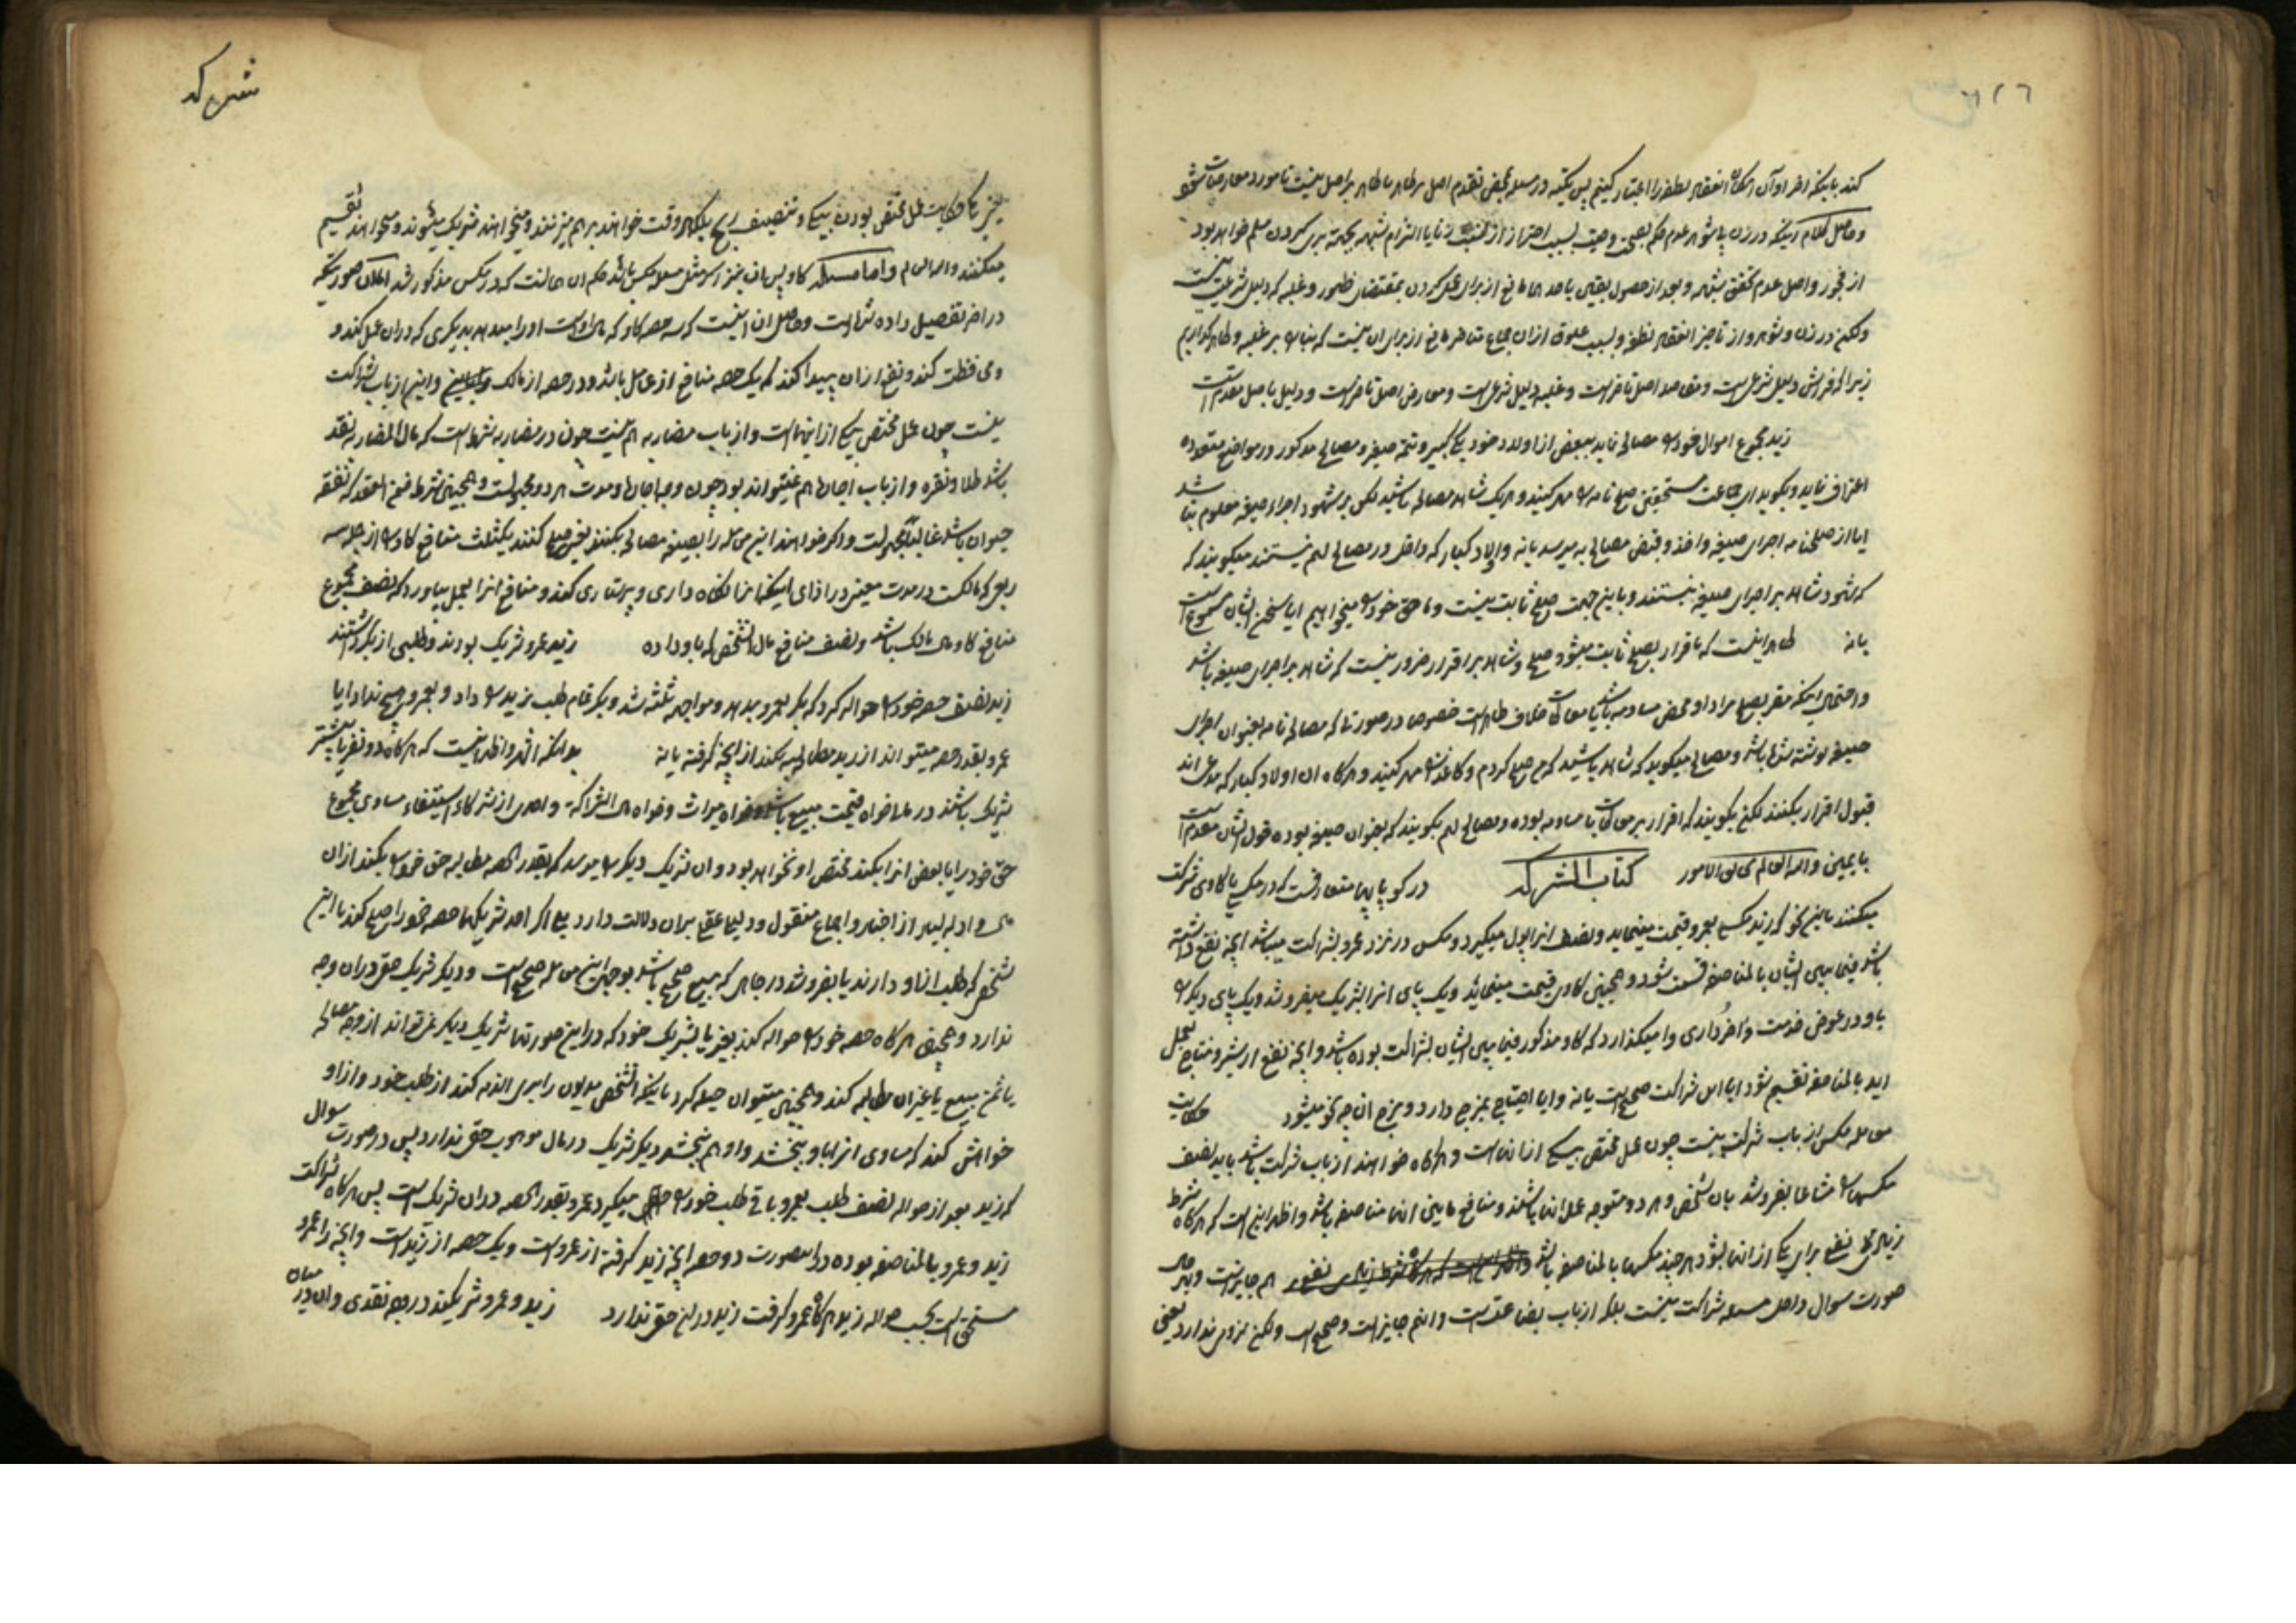 کند باینکه اخر اوآن امکان انعقاد نطفه را اعتبار کنیم پس تکیه در مسئله بمحض تقدم اصل بر ظاهر یا ظاهر بر اصل نیست تا مورد معارضات شود
وحاصل کلام اینکه در زن با شوهر عدم حکم بسبب احتراز از نسبت زنا یا التزام شبهه بجهة بری کردن مسلم خواهد بود
از فجور واصل عدم تحقق شبهه وبعد از حصول یقین باحدهما مانع از برای عمل کردن بمقتضای ظهور وغلبه که دلیل شرعیت نیست
ولکن در زن وشوهر واز تاخیر انعقاد نطفه وبسبب علوق ازان جماع متاخر مانع از برای ان نیست که بناء بر غلبه وظاهر گذاریم
زیرا که فراش دلیل شرعی است ومقاصد اصل تاخر است وغلبه دلیل شرعی است ومعارض اصل تاخر است ودلیل باصل مقدم است
زید مجموع اموال خود را مصالحه نماید ببعض از اولاد خود یکی کبیر وتتمه صغیر ومصالح مذکور در مواضع متعدده
اعتراف نماید وبگوید ای جماعت مستحقین صلح نامه را مهر کنید وهریک شاهد مصالحه باشید لکن بر شهود اجراء صیغه معلوم نباشد
ایا از صلحنامه اجرای صیغه واخذ وقبض مصالح به میرسد یانه واولاد کبار که داخل در مصالح لهم نیستند میگویند که
که شهود شاهد بر اجرای صیغه نیستند وباین جهت صلح ثابت نیست وما حق خود را میخواهیم ایا سخن ایشان مسموع است
یانه ظاهر اینست که باقرار بصلح ثابت میشود صلح وشاهد بر اقرار ضرور نیست که شاهد بر اجرای صیغه باشد
واحتمال اینکه مقر بصلح مراد او محض مساومه باشد یا معاطات خلاف ظاهر است خصوص در صورتیکه مصالحه نامه بعنوان اجرای
صیغه نوشته شده باشد ومصالح میگوید که شاهد باشید که من صلح کردم وکاغذ را مهر کنید وهرگاه ان اولاد کبار که مدعی اند
قبول اقرار بکنند لکن بگویند که اقرار بر معاطات یا مساومه بوده ومصالح لهم بگویند که بعنوان صیغه بوده قول ایشان مقدم است
با یمین والله العالم بحقایق الامور کتاب الشرکه در کوپایها متعارفست که در مکس یا گاوی شرکت
میکنند باین نحو که زید مکس بعمرو قیمت مینماید ونصف انرا پول میگیرد ومکس در نزد عمرو بشراکت میباشد انچه نفع داشته
باشد فیما بین ایشان بالمناصفه قسمت شود وهمچنین گاوی قیمت مینماید ویک پای انرا بشریک میفروشد ویک پای دیگر را
باو در عوض خدمت واخرداری وامیگذارد که گاو مذکور فیما بین ایشان بشراکت بوده باشد وانچه نفع از شیر ونتاج بعمل
اید بالمناصفه تقسیم شود ایا این شراکت صحیح است یانه وایا احتیاج بمزج دارد ومزج ان چه نحو میشود حکایت
معامله مکس از باب شرکت نیست چون عمل مختص بیکی از انهاست وهرگاه خواهند از باب شرکت باشد باید نصف
مکسها را مشاعا بفروشد بان شخص وهر دو متوجه عمل انها باشند ومنافع مابین انها مناصفه باشد واظهر این است که هرگاه شرط
زیادتی نفع برای یکی از انها بشود هرچند مکسها بالمناصفه باشد هم جایز است وبهر حال
صورت سوال داخل مسئله شراکت نیست بلکه از باب بضاعتست وانهم جایز است وصحیح است ولکن لزومی ندارد یعنی
شرکه
نیز تا حکایت عمل مختص بودن بیکی وتنصیف ربح بلکه هر وقت خواهند برهم میزنند ومیخواهند شریک میشوند ومیخواهند تقسیم
میکنند والله العالم واما مسئله گاو پس ان نیز اگر مثل مسئله مکس باشد حکم ان همانست که در مکس مذکور شد
در اخر تفصیل داده شده است وحاصل ان اینست که سه حصه گاو که مال اوست اورا میدهد بدیگری که دران عمل کند و
ومحافظت کند ونفع ازان پیدا کند که یک حصه منافع از عامل باشد ودو حصه از مالک واین از باب شراکت
نیست چون عمل مختص بیکی از اینهاست واز باب مضاربه هم نیست چون در مضاربه شرط است که مال المضاربه نقد
باشد طلا ونقره واز باب اجاره هم نمیتواند بود چون وجه اجاره ومدت هر دو مجهولست وهمچنین شرط ضمن العقد که نفقه
حیوان باشد غالبا مجهولست واگر خواهند این معامله را بصیغه مصالحه بکنند یعنی صلح کنند یکثلث منافع گاو را از جمله سه
ربع که مالکست در مدت معین در ازای اینکه انرا نگاه داری وپرستاری کند ومنافع انرا بعمل بیاورد که نصف مجموع
منافع گاو مال مالک باشد ونصف منافع مال انشخص که باو داده زید وعمرو شریک بودند وطلبی از بکر داشتند
زید نصف حصه خود را حواله کرد که بکر بعمرو بدهد ومواجهه ثلثه شد وبکر تمام طلب زید را داد وبعمرو هیچ نداد ایا
عمرو بقدر حصه میتواند از زید مطالبه بکند از انچه گرفته یا نه بدانکه اشهر واظهر اینست که هرگاه دو نفر یا بیشتر
شریک باشند در مال خواه قیمت مبیع باشد وخواه میراث وخواه مال الشراکة واحدی از شرکاء استیفاء مساوی مجموع
حق خود را یا بعض انرا بکند مختص او نخواهد بود وان شریک دیگر را میرسد که بقدر الحصه مطالبه حق خود را بکند ازان
مال وادله بسیار از اخبار واجماع منقول ودلیل عقلی بران دلالت دارد بلی اگر احد شریکها حصه خود را صلح کند با این
شخص که طلب از او دارند یا بفروشد در جائی که بیع صحیح باشد بوجهی این معامله صحیح است ودیگر شریک حق دران وجه
ندارد وهمچنین هرگاه حصه خود را حواله کند بغیر یا بشریک خود که در این صورتها شریک دیگر نمیتواند از وجه مصالحه
یا ثمن مبیع یا غیر ان مطالبه کند وهمچنین میتوان حیله کرد باینکه انشخص مدیون را بری الذمه کند از طلب خود واز او
خواهش کند که مساوی انرا باو ببخشد واو هم ببخشد دیگر شریک در مال موهوب حق ندارد پس در صورت سوال
که زید بعد از حواله نصف طلب بعمرو باقی طلب خود را میگیرد عمرو بقدر الحصه دران شریک است پس هرگاه شراکت
زید وعمرو بالمناصفه بوده در این صورت دو حصه انچه زید گرفته از عمرو است ویک حصه از زید است وانچه را عمرو
مستحق است بحسب حواله زید هرگاه عمرو گرفت زید در ان حق ندارد زید وعمرو شریکند در وجه نقدی وان در میان